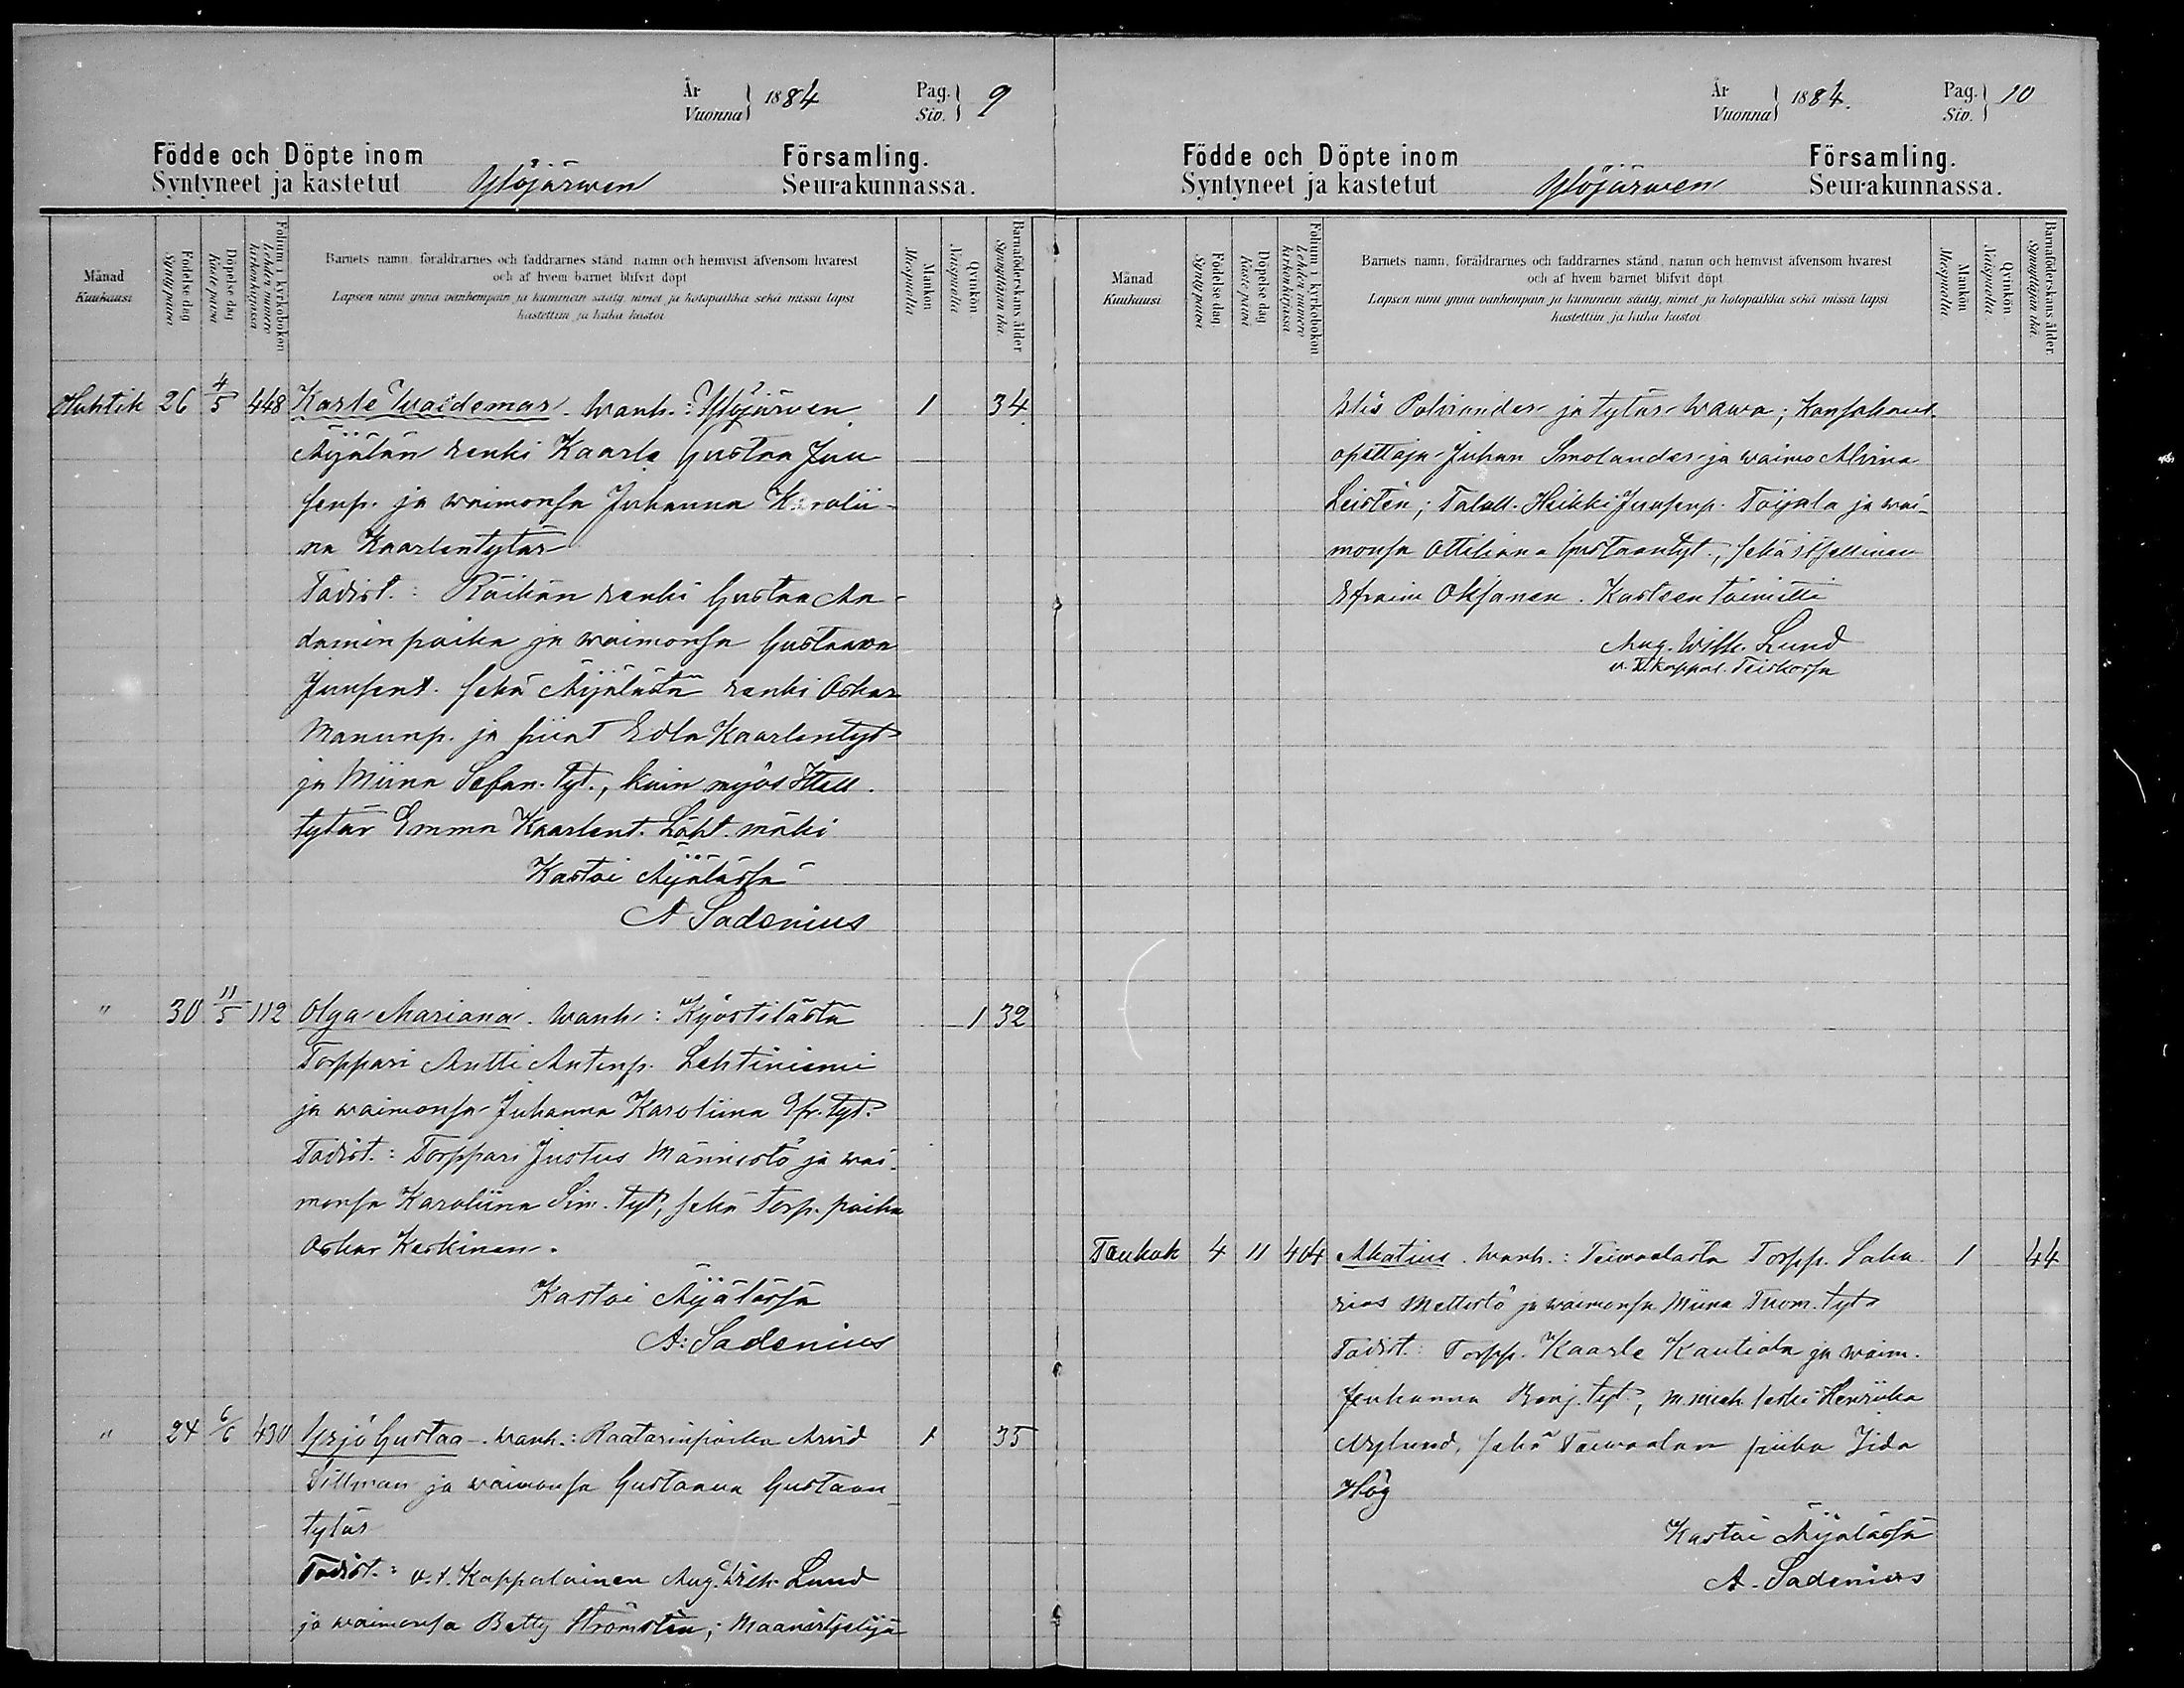 År
Vuonna } 1884 Pag.
Siv. } 9
Födde och Döpte inom Församling.
Syntyneet ja kastetut Ylöjärwen Seurakunnassa.
Månad
Kuukausi
Födelse dag
Synty päivä
Döpelse dag
Kaste päivä
Folium i kyrkoboken
Lehden numero kirkonkirjassa
Barnets namn, föräldrarnes och faddrarnes stånd, namn och hemvist äfvensom hvarest
och af hvem barnet blifvit döpt
Lapsen nimi ynnä vanhempain ja kummein sääty, nimet ja kotopaikka sekä missä lapsi
kastettiin ja kuka kastoi
Mankön
Miespuolia
Qvinkön
Naispuolia
Barnaföderskans ålder
Synnyttäjän ikä.
Huhtik 26 4/5 448 Karle Waldemar. Wanh.: Ylöjärven 1 34
Äijälän renki Kaarle Gustaa Juu
senp. ja waimonsa Juhanna Karolii-
na Kaarlentytär
Todist.: Räikän renki Gustaa Aa-
damin poika ja waimonsa Gustaawa
Juusent. sekä Äijälästä renki Oskar
Manunp. ja piiat Edla Kaarlentyt
ja Miina Sefan. tyt., kuin myös Itsell.
tytär Emma Kaarlent. Läht. mäki
Kastoi Äijälässä
A Sadenius
" 30 11/5 112 Olga Mariana. Wanh.: Kyöstilästä 1 32
Torppari Antti Antinp. Lehtiniemi
ja waimonsa Juhanna Karoliina Efr. tyt.
Todist.: Torppari Justus Männistö ja wai-
monsa Karoliina Sim. tyt, sekä torp. poika
Oskar Keskinen.
Kastoi Äijälässä
A. Sadenius
" 24 6/6 430 Yrjö Gustaa. Wanh.: Raatarinpoika Arvid 1 35
Dillman ja waimonsa Gustaawa Gustaan-
tytär
Todist.: v.t. Kappalainen Aug. Wilh. Lund
ja waimonsa Betty Strömstén; Maanviljeliä
År
Vuonna } 1884. Pag.
Siv. } 10
Födde och Döpte inom Församling.
Syntyneet ja kastetut Ylöjärwen Seurakunnassa.
Månad
Kuukausi
Födelse dag
Synty päivä
Döpelse dag
Kaste päivä
Folium i kyrkoboken
Lehden numero kirkonkirjassa
Barnets namn, föräldrarnes och faddrarnes stånd, namn och hemvist äfvensom hvarest
och af hvem barnet blifvit döpt
Lapsen nimi ynnä vanhempain ja kummein sääty, nimet ja kotopaikka sekä missä lapsi
kastettiin ja kuka kastoi
Mankön
Miespuolia
Qvinkön
Naispuolia
Barnaföderskans ålder.
Synnyttäjän ikä.
Elis Polviander ja tytär Wawa; Kansakoul.
opettaja Juhan Smolander ja waimo Alvina
Leistén; Taloll. Heikki Juusenp. Toijala ja wai-
monsa Ottiliana Gustaantyt., sekä itsellinen
Efraim Oksanen. Kasteen toimitti
Aug. Wilh. Lund
v. t. kappal. Teiskossa
Toukok 4 11 404 Akatius. Wanh.: Teiwaalasta Torpp. Saka- 1 44
rias Mettistö ja waimonsa Miina Tuom. tyt
Todist.: Torpp. Kaarle Kautiala ja waim.
Jeuhanna Benj. tyt., m. mieh. leski Henriika
Nylund, sekä Teiwaalan piika Iida
Hög
Kastoi Äijälässä
A. Sadenius